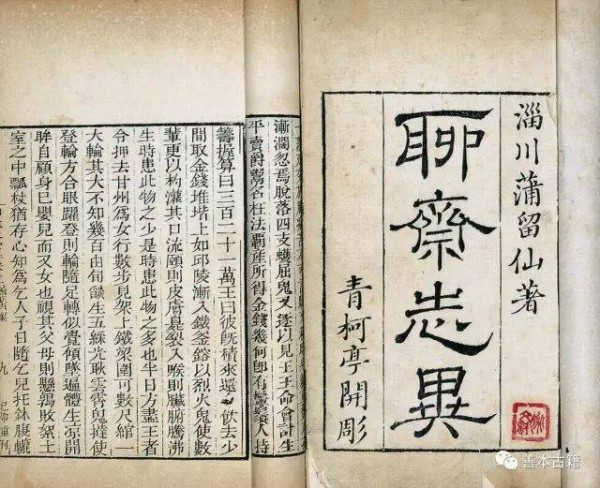 淄川蒲留仙著
聊齋志異
青柯亭開彫
漸瀾忽焉脫落四支蠖屈鬼又逐以見王王命會計生
平賣爵鬻名枉法覇產所得金錢幾何卽有鬡鬚人持
籌握算曰三百二十一萬王曰彼旣積來還飲去少
間取金錢堆堦上如邱陵漸入鐵釜鎔以烈火鬼使數
輩更以杓灌其口流頤則皮膚臭裂入喉則臟腑騰沸
生時患此物之少是時患此物之多也半日方盡王者
令押去甘州爲女行數步見架上鐵梁圍可數尺綰一
大輪其大不知幾百由旬燄生五綵光耿雲霄鬼撻使
登輪方合眼躍登則輪隨足轉似覺傾墜遍體生凉開
眸自顧身已嬰兒而又女也視其父母則懸鶉敗絮土
室之中瓢杖猶存心知爲乞人子日隨乞兒托鉢腹轆
九
善本古籍